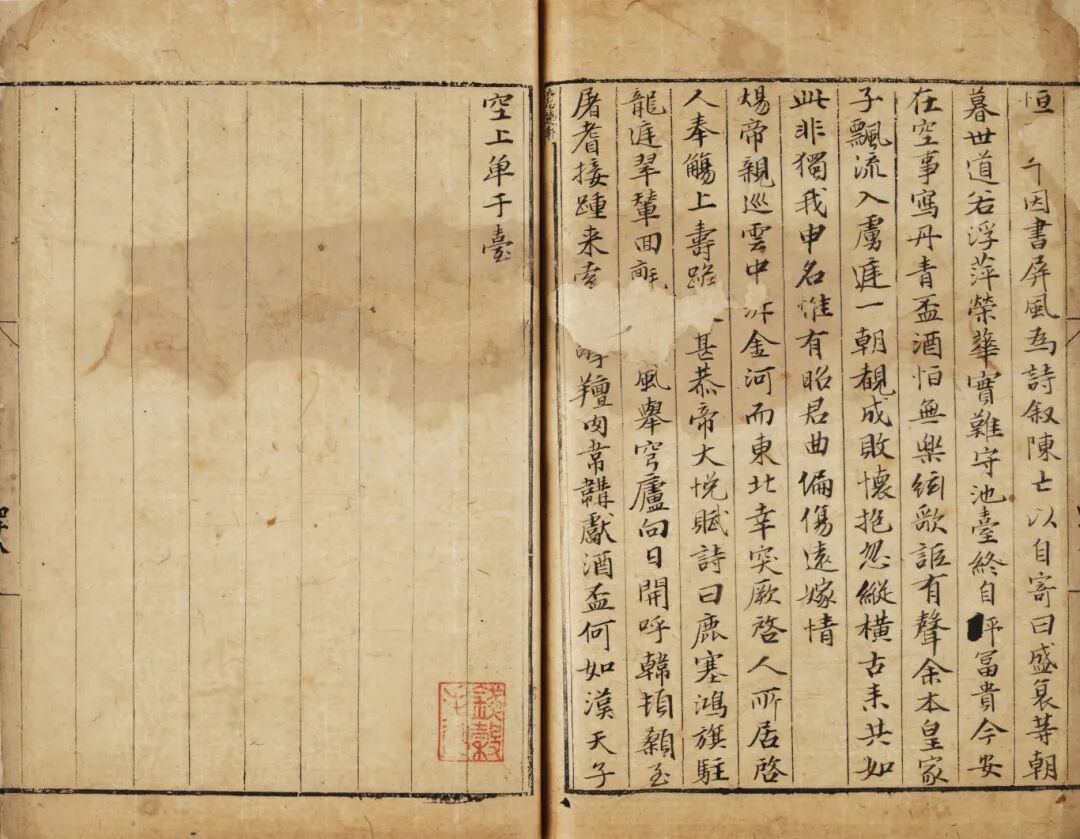 恒因書屏風為詩叙陳亡以自寄曰盛衰等朝
暮世道若浮萍榮華實難守池臺終自坪冨貴今安
在空事寫丹青盃酒怕無樂絃歌詎有聲余本皇家
子飄流入虜庭一朝覩成敗懷抱忽縱橫古来共如
此非獨我申名惟有昭君曲偏傷遠嫁情
煬帝親巡雲中泝金河而東北幸突厥啓人所居啓
人奉觴上壽跪甚恭帝大悅賦詩曰鹿塞鴻旗駐
龍庭翠輦回風舉穹廬向日開呼韓頓顙至
屠耆接踵来索羶肉韋鞲獻酒盃何如漢天子
空上单于臺
錢穀